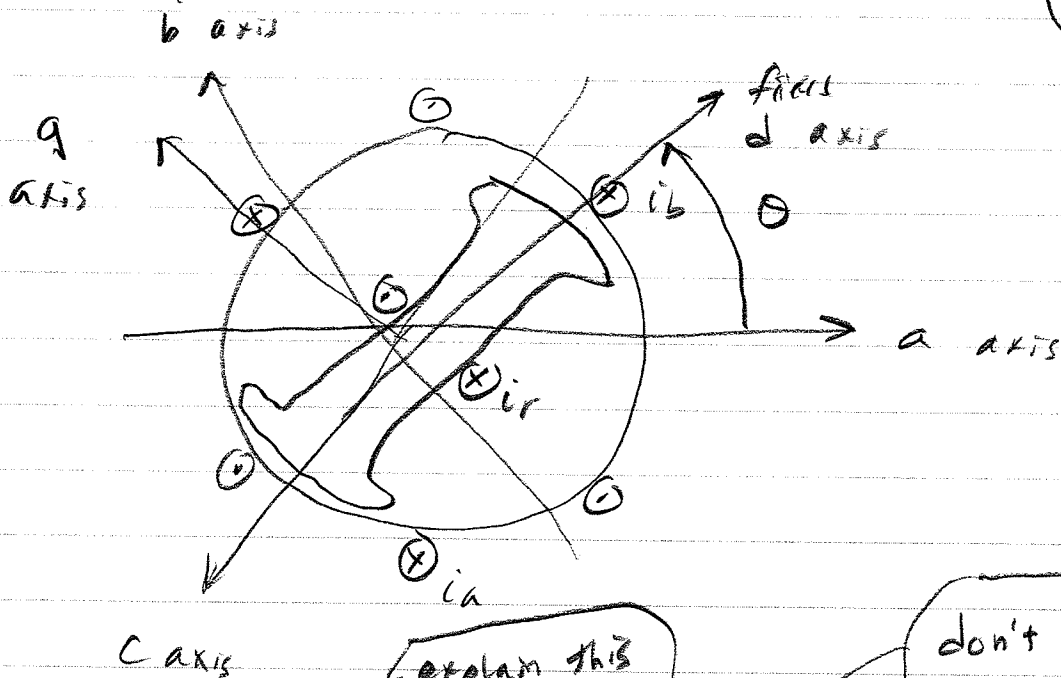 b axis
q
axis
d axis
ib
θ
a axis
ir
ia
C axis
explain this
don't